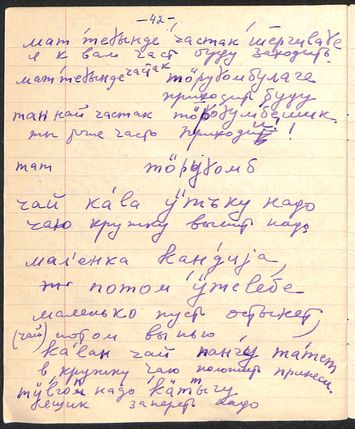 -42-
мат тебынде частак шергувабе
я к вам част буду заходить
мат тебынде частак тöрубомбулаге
приходит буду
тан най частак тöрбумбешик
ты тоже часто приходить!
тат тöрубомб
чай кава ӱтъку надо
чаю кружку выпит надо
маленка кандија,
потом ӱтелебе
маленько пусть остынет,
(чай) потом выпью
каван чай панчу татет
в кружку чаю положит принеси.
тӱвгоп надо кäттыгу
ящик запереть надо